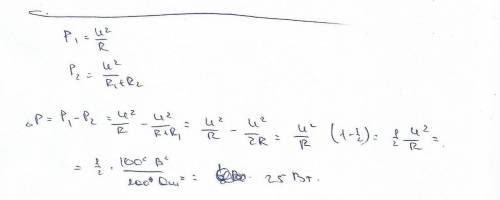 P₁ = U²/R
P₂ = U²/(R₁+R₂)
ΔP = P₁ - P₂ = U²/R - U²/(R+R₁) = U²/R - U²/2R = U²/R (1-½) = ½ U²/R =
= ½ ·  = 25 Вт.